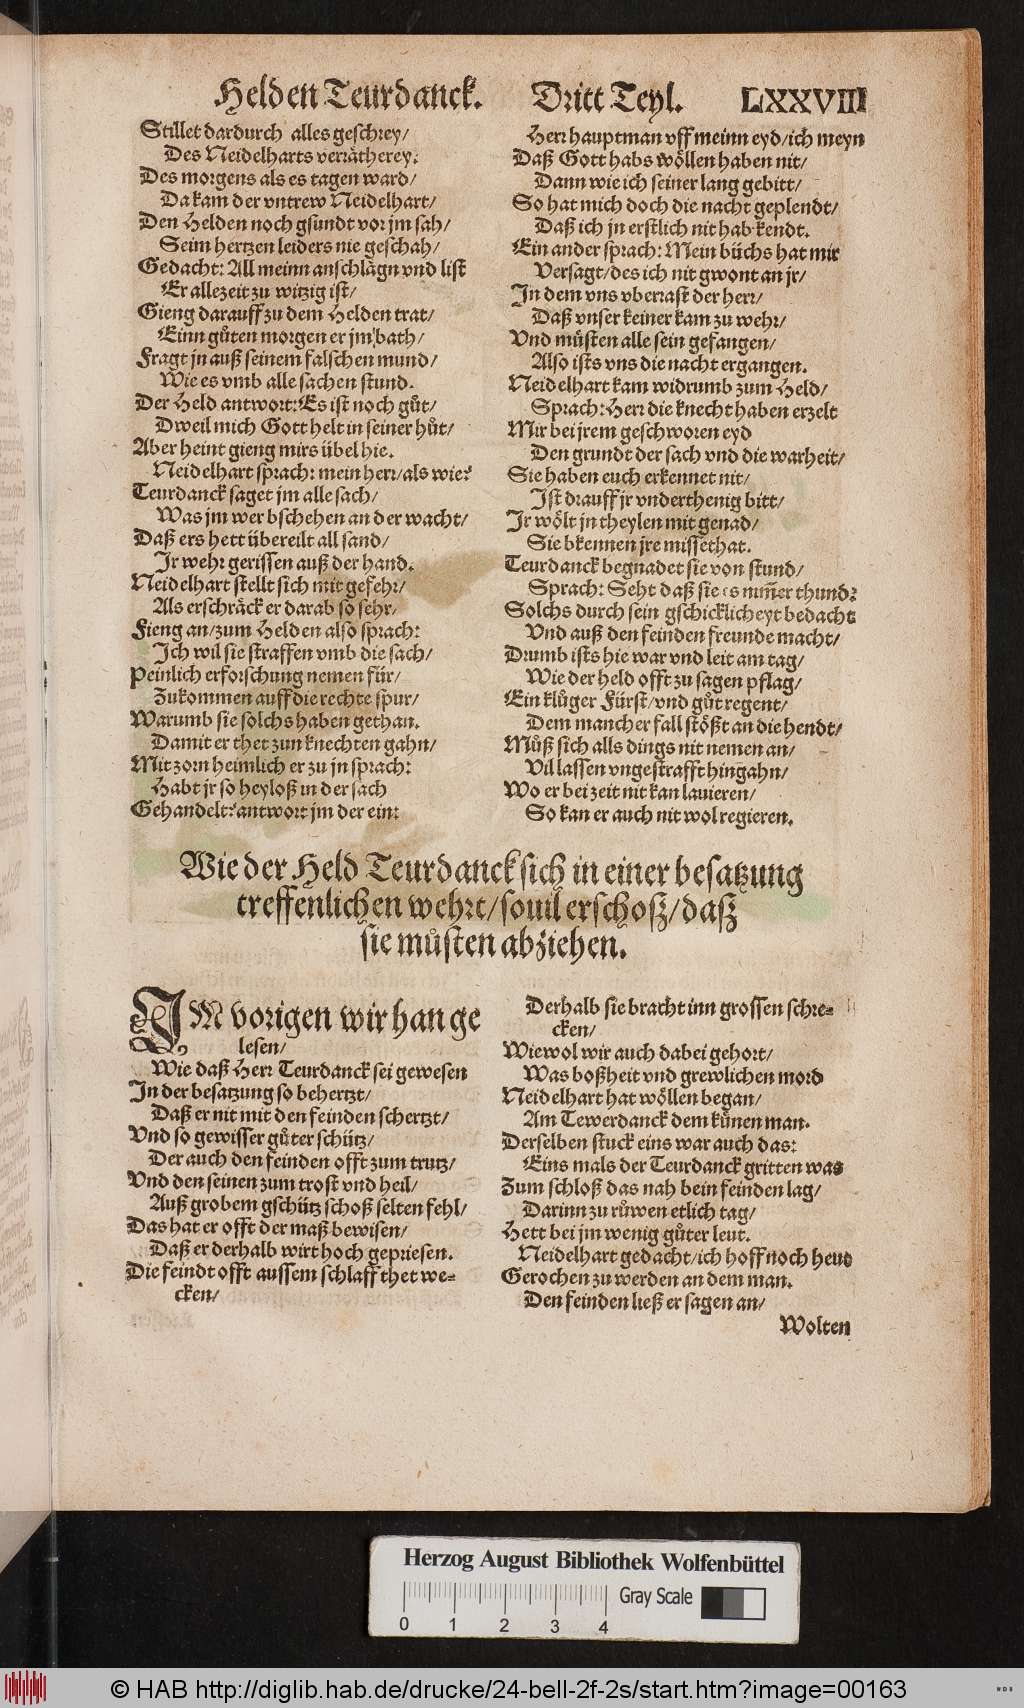 Helden Teurdanck. Dritt Teyl. LXXVIII
Stillet dardurch alles geschrey/
Des Neidelharts verrätherey.
Des morgens als es tagen ward/
Da kam der vntrew Neidelhart/
Den Helden noch gsundt vor jm sah/
Seim hertzen leiders nie geschah/
Gedacht: All meinn anschlägn vnd list
Er allezeit zu witzig ist/
Gieng darauff zu dem Helden trat/
Einn gůten morgen er jm bath/
Fragt jn auß seinem falschen mund/
Wie es vmb alle sachen stund.
Der Held antwort: Es ist noch gůt/
Dweil mich Gott helt in seiner hůt/
Aber heint gieng mirs übel hie.
Neidelhart sprach: mein herr/als wie?
Teurdanck saget jm alle sach/
Was jm wer bschehen an der wacht/
Daß ers hett übereilt all sand/
Jr wehr gerissen auß der hand.
Neidelhart stellt sich mit gefehr/
Als erschräck er darab so sehr/
Fieng an/zum Helden also sprach:
Ich wil sie straffen vmb die sach/
Peinlich erforschung nemen für/
Zukommen auff die rechte spur/
Warumb sie solchs haben gethan.
Damit er thet zun knechten gahn/
Mit zorn heimlich er zu jn sprach:
Habt jr so heyloß in der sach
Gehandelt? antwort jm der ein:
Herr hauptman vff meinn eyd/ich meyn
Daß Gott habs wöllen haben nit/
Dann wie ich seiner lang gebitt/
So hat mich doch die nacht geplendt/
Daß ich jn erstlich nit hab kendt.
Ein ander sprach: Mein büchs hat mir
Versagt/des ich nit gwont an jr/
In dem vns vberrast der herr/
Daß vnser keiner kam zu wehr/
Vnd můsten alle sein gefangen/
Also ists vns die nacht ergangen.
Neidelhart kam widrumb zum Held/
Sprach: Herr die knecht haben erzelt
Mir bei jrem geschworen eyd
Den grundt der sach vnd die warheit/
Sie haben euch erkennet nit/
Ist drauff jr vnderthenig bitt/
Ir wölt jn theylen mit genad/
Sie bkennen jre missethat.
Teurdanck begnadet sie von stund/
Sprach: Seht daß sie es nim̃er thund?
Solchs durch sein gschicklicheyt bedacht
Vnd auß den feinden freunde macht/
Drumb ists hie war vnd leit am tag/
Wie der held offt zu sagen pflag/
Ein klůger Fürst/vnd gůt regent/
Dem mancher fall stößt an die hendt/
Můß sich alls dings nit nemen an/
Vil lassen vngestrafft hingahn/
Wo er bei zeit nit kan lauieren/
So kan er auch nit wol regieren.
Wie der Held Teurdanck sich in einer besatzung
treffenlichen wehrt/souil erschoß/daß
sie můsten abziehen.
IM vorigen wir han ge
lesen/
Wie daß Herr Teurdanck sei gewesen
In der besatzung so behertzt/
Daß er nit mit den feinden schertzt/
Vnd so gewisser gůter schütz/
Der auch den feinden offt zum trutz/
Vnd den seinen zum trost vnd heil/
Auß grobem gschütz schoß selten fehl/
Das hat er offt der maß bewisen/
Daß er derhalb wirt hoch gepriesen.
Die feindt offt aussem schlaff thet we-
cken/
Derhalb sie bracht inn grossen schre-
cken/
Wiewol wir auch dabei gehort/
Was boßheit vnd grewlichen mord
Neidelhart hat wöllen began/
Am Tewerdanck dem kůnen man.
Derselben stuck eins war auch das:
Eins mals der Teurdanck gritten was
Zum schloß das nah bein feinden lag/
Darinn zu růwen etlich tag/
Hett bei jm wenig gůter leut.
Neidelhart gedacht/ich hoff noch heut
Gerochen zu werden an dem man.
Den feinden ließ er sagen an/
Wolten
Herzog August Bibliothek Wolfenbüttel
Gray Scale
0 1 2 3 4
© HAB http://diglib.hab.de/drucke/24-bell-2f-2s/start.htm?image=00163